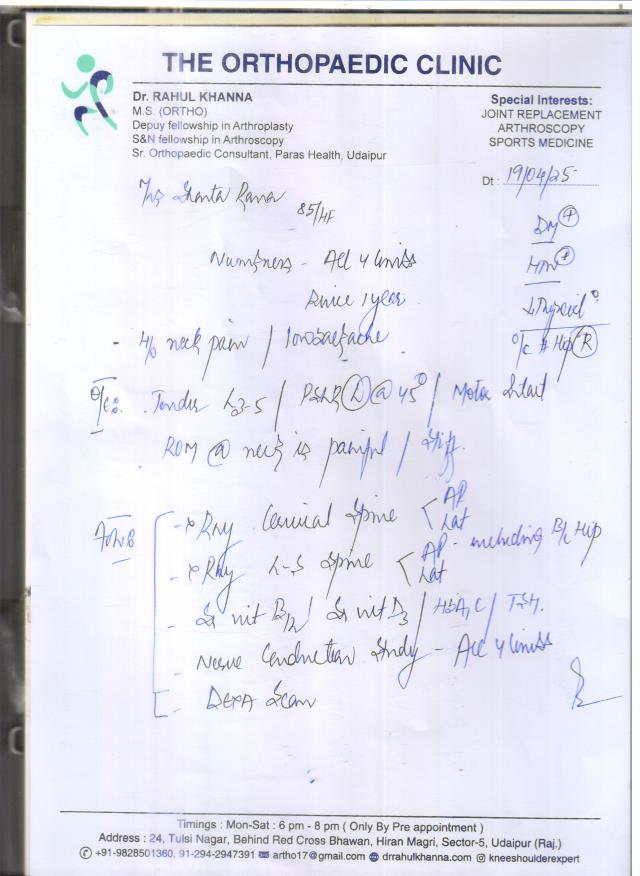 THE ORTHOPAEDIC CLINIC
Dr. RAHUL KHANNA
M.S. (ORTHO)
Depuy fellowship in Arthroplasty
S&N fellowship in Arthroscopy
Sr. Orthopaedic Consultant, Paras Health, Udaipur
Special Interests:
JOINT REPLACEMENT
ARTHROSCOPY
SPORTS MEDICINE
Dt : 19/04/25
Shanta
85/
DM +
HTN +
Numbness - All 4 limbs
Since 1 year
Thyroid
Hip R
- neck pain / lowbackache
O/E: . Tender L3-5 / PSLR L @ 45° / Motor Intact
. ROM @ neck is painful / Stiff.
- x Ray Cervical Spine < AP Lat
- x Ray L-S Spine < AP - including B/L Hip Lat
- Sr vit B12 / Sr vit D3 / HbA1C / TSH.
- Nerve Conduction Study - All 4 limbs
- DEXA Scan
Timings : Mon-Sat : 6 pm - 8 pm ( Only By Pre appointment )
Address : 24, Tulsi Nagar, Behind Red Cross Bhawan, Hiran Magri, Sector-5, Udaipur (Raj.)
+91-9828501360, 91-294-2947391 artho17@gmail.com drrahulkhanna.com kneeshoulderexpert